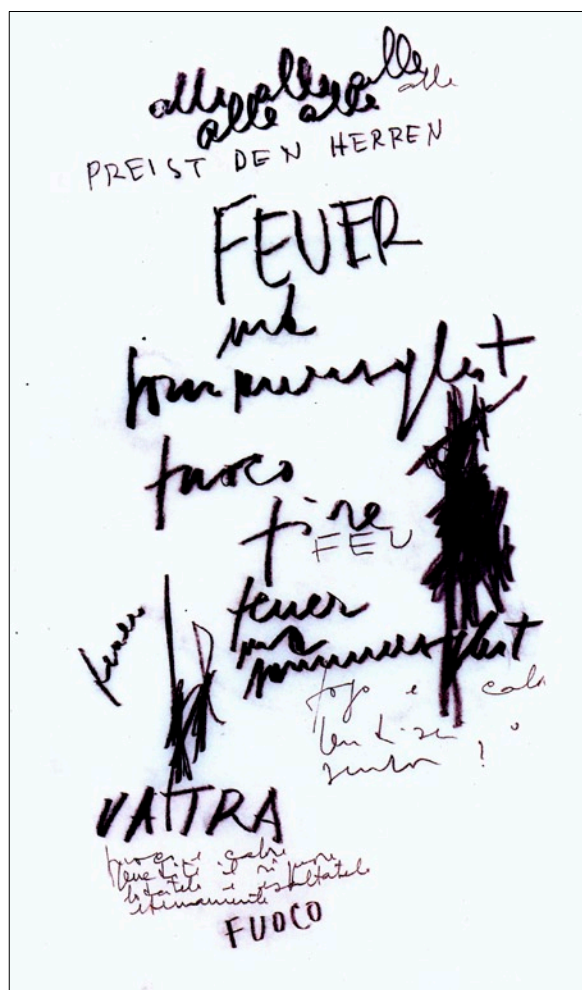 alle alle alle alle
alle alle
PREIST DEN HERREN
FEUER
und
sommersglut
fuoco
fire
FEU
feuer
feuer
und
sommersglut
fogo e calor
bendizei o
senhor !
VATTRA
fuoco e calore
benedite il signore
lodatelo e esaltatelo
eternamente
FUOCO